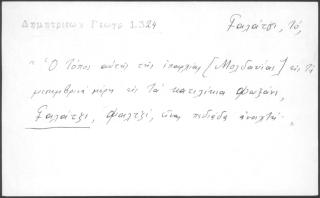 Δημητριέων Γεωγρ 1.324
Γαλάτζι, τό,
"Ὁ τόπος αὐτὸς τῆς ἐπαρχίας [Μολδανίας] εἰς τὰ
μεσημβρινὰ μέρη εἰς τὰ κατιλίκια Φωξάνι,
Γαλάτζι, Φαλτζί, εἶναι πεδιάδα ἀνοιχτή·